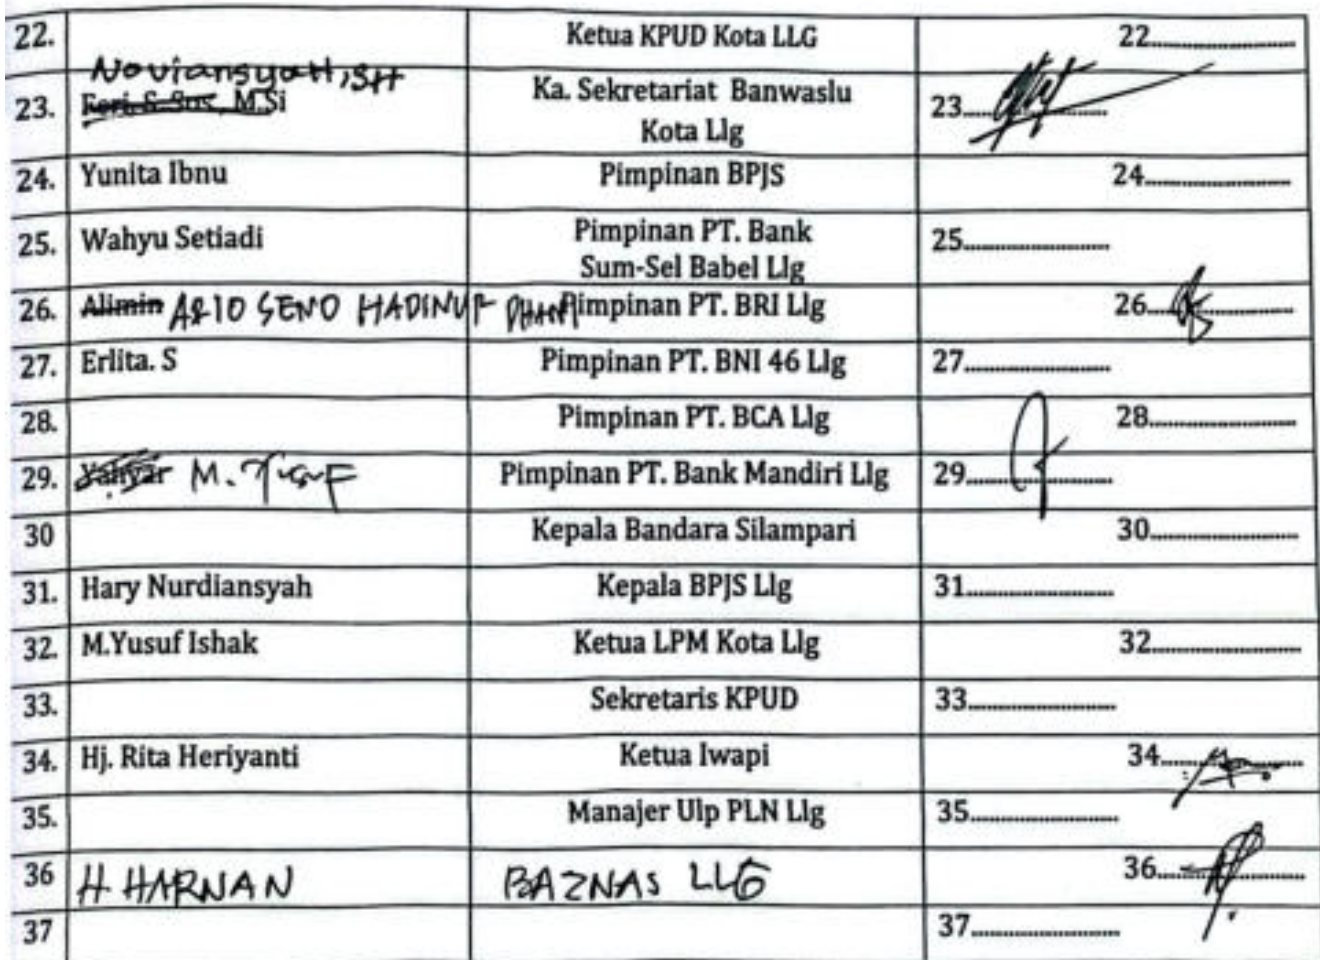 22. Ketua KPUD Kota LLG 22..................
Noviansyah, SH
23. Feri S. Sos, M.Si Ka. Sekretariat Banwaslu 23..................
Kota Llg
24. Yunita Ibnu Pimpinan BPJS 24..................
25. Wahyu Setiadi Pimpinan PT. Bank 25..................
Sum-Sel Babel Llg
26. Alimin ARIO SENO HADINUR Pimpinan PT. BRI Llg 26..................
27. Erlita. S Pimpinan PT. BNI 46 Llg 27..................
28. Pimpinan PT. BCA Llg 28..................
29. M. Yusuf Pimpinan PT. Bank Mandiri Llg 29..................
30 Kepala Bandara Silampari 30..................
31. Hary Nurdiansyah Kepala BPJS Llg 31..................
32. M.Yusuf Ishak Ketua LPM Kota Llg 32..................
33. Sekretaris KPUD 33..................
34. Hj. Rita Heriyanti Ketua Iwapi 34..................
35. Manajer Ulp PLN Llg 35..................
36 H HARNAN BAZNAS LLG 36..................
37 37..................